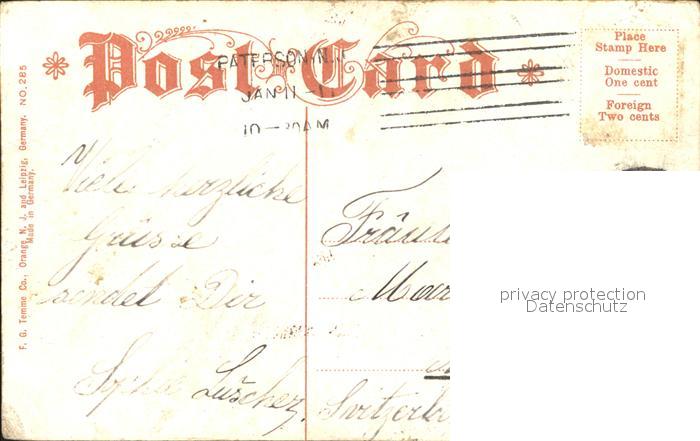 Post Card
PATERSON, N.J.
JAN 11 - 11
10 - 30 AM
Place
Stamp Here
Domestic
One cent
Foreign
Two cents
F. G. Temme Co., Orange N. J. and Leipzig, Germany. NO. 285
Made in Germany.
Viele herzliche
Grüsse
sendet Dir
Sophie
Fräul
Mar
Switzerla
privacy protection
Datenschutz